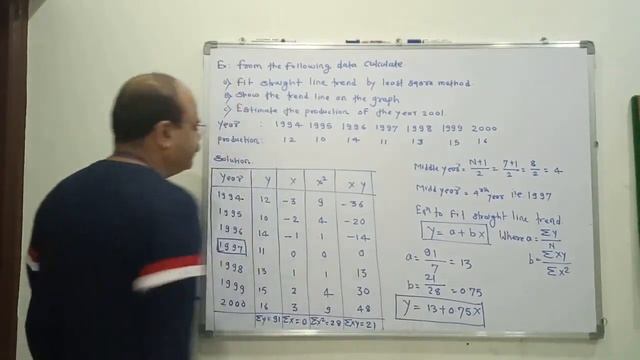 Ex: From the following data calculate
a) Fit straight line trend by least square method
b) Show the trend line on the graph
c) Estimate the production of the year 2001.
year : 1994 1995 1996 1997 1998 1999 2000
production: 12 10 14 11 13 15 16
Solution:
Year Y X X² XY
1994 12 -3 9 -36
1995 10 -2 4 -20
1996 14 -1 1 -14
1997 11 0 0 0
1998 13 1 1 13
1999 15 2 4 30
2000 16 3 9 48
ΣY=91 ΣX=0 ΣX²=28 ΣXY=21
Middle year = N+1/2 = 7+1/2 = 8/2 = 4
Middle year = 4th year i.e. 1997
Eqn to fit straight line trend
Y = a + bX Where a = ΣY/N
b = ΣXY/ΣX²
a = 91/7 = 13
b = 21/28 = 0.75
Y = 13 + 0.75X